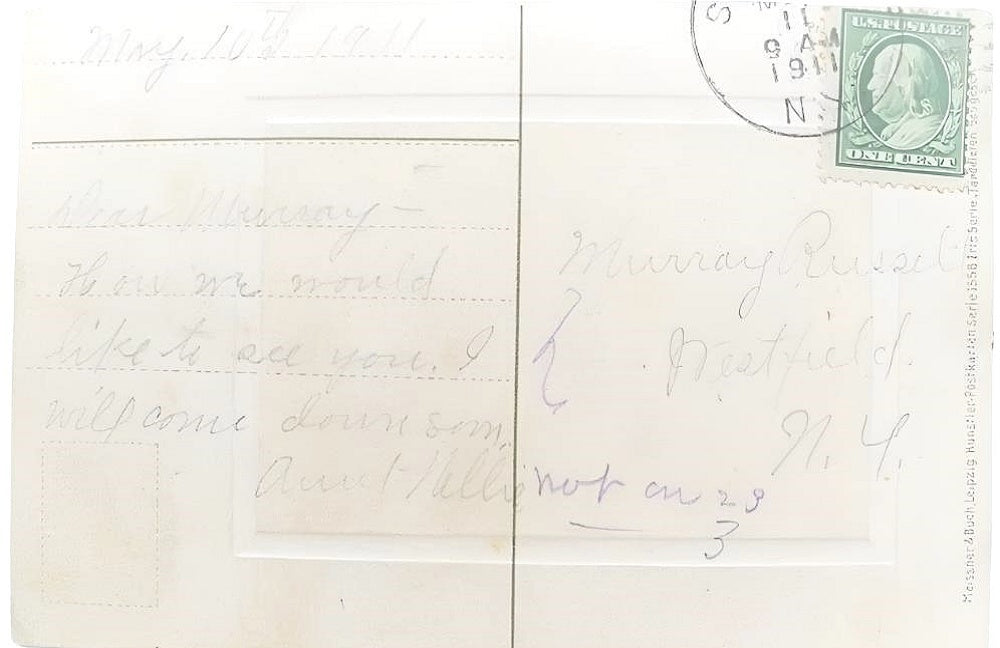 May. 10th 1911
Dear Murray —
How we would
like to see you. I
will come down som.
Aunt Nellie
MAY
11
9 AM
1911
N.Y.
U.S. POSTAGE
ONE CENT
Murray Russel
Westfield.
N. Y.
not on 23
3
Meissner & Buch, Leipzig. Künstler-Postkarten Serie 1558 Iris Serie.